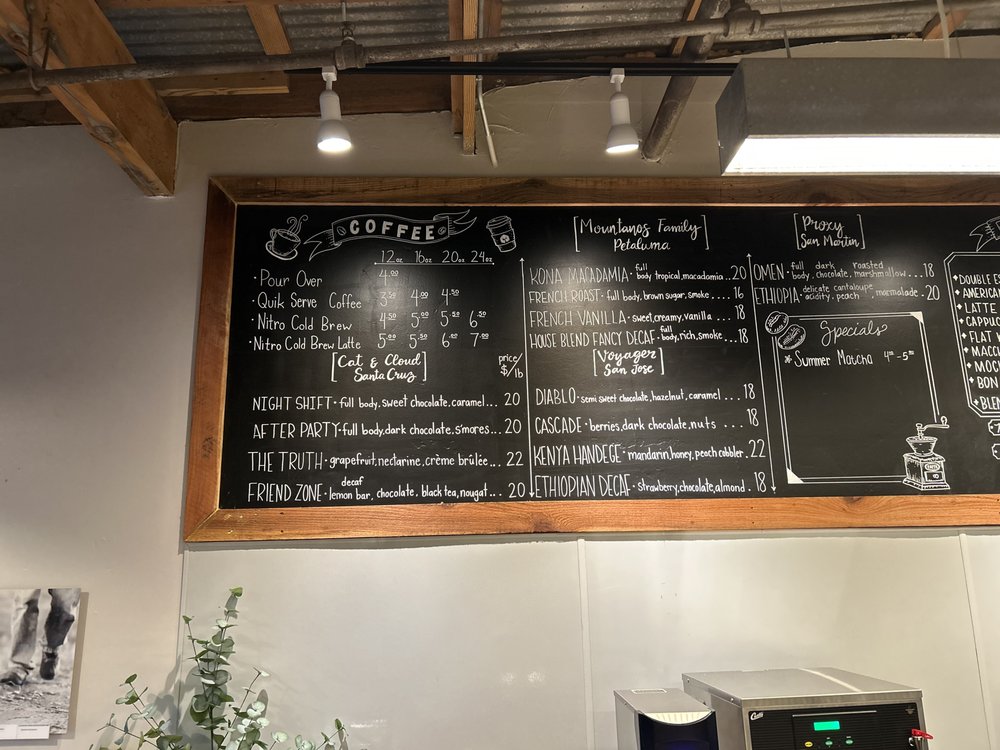 COFFEE
12oz 16oz 20oz 24oz
· Pour Over 4.00
· Quik Serve Coffee 3.50 4.00 4.50
· Nitro Cold Brew 4.50 5.00 5.50 6.50
· Nitro Cold Brew Latte 5.00 5.50 6.00 7.00
[Cat & Cloud
Santa Cruz]
price/
$/lb
NIGHT SHIFT · full body, sweet chocolate, caramel... 20
AFTER PARTY · full body, dark chocolate, s'mores... 20
THE TRUTH · grapefruit, nectarine, crème brûlée... 22
FRIEND ZONE · decaf
lemon bar, chocolate, black tea, nougat... 20
[Mountanos Family
Petaluma]
KONA MACADAMIA · full
body tropical, macadamia.. 20
FRENCH ROAST · full body, brown sugar, smoke.... 16
FRENCH VANILLA · sweet, creamy, vanilla.... 18
HOUSE BLEND FANCY DECAF · full
body, rich, smoke... 18
[Voyager
San Jose]
DIABLO · semi sweet chocolate, hazelnut, caramel... 18
CASCADE · berries, dark chocolate, nuts.... 18
KENYA HANDEGE · mandarin, honey, peach cobbler. 22
ETHIOPIAN DECAF · strawberry, chocolate, almond. 18
[Proxy
San Martin]
OMEN · full dark roasted
body, chocolate, marshmallow.... 18
ETHIOPIA · delicate cantaloupe
acidity, peach, marmalade. 20
Specials
* Summer Matcha 4.00 - 5.00
DOUBLE ES
AMERICAN
LATTE
CAPPUC
FLAT W
MACCH
MOCH
BON
BLEN
Curtis